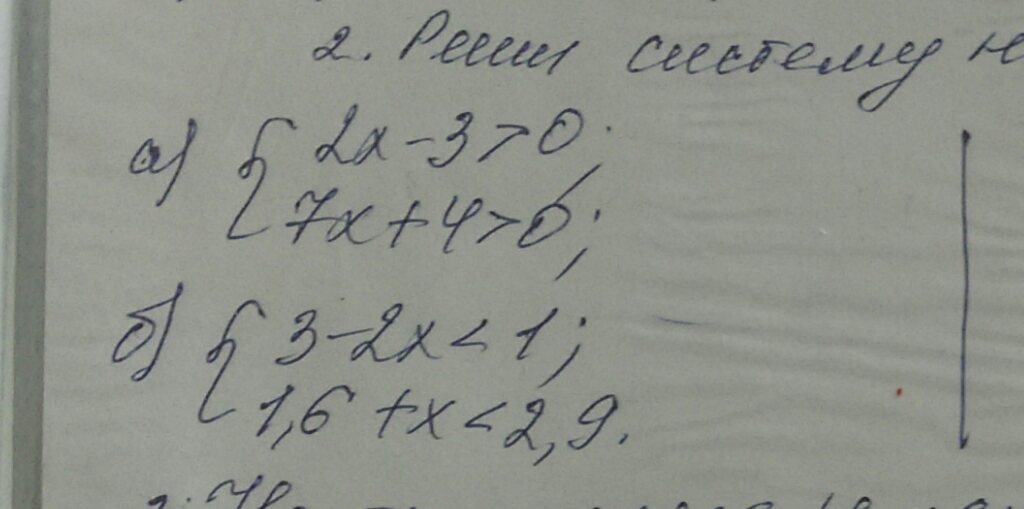 2. Реши систему н
а) { 2x - 3 > 0;
7x + 4 > 0;
б) { 3 - 2x < 1;
1,6 + x < 2,9.